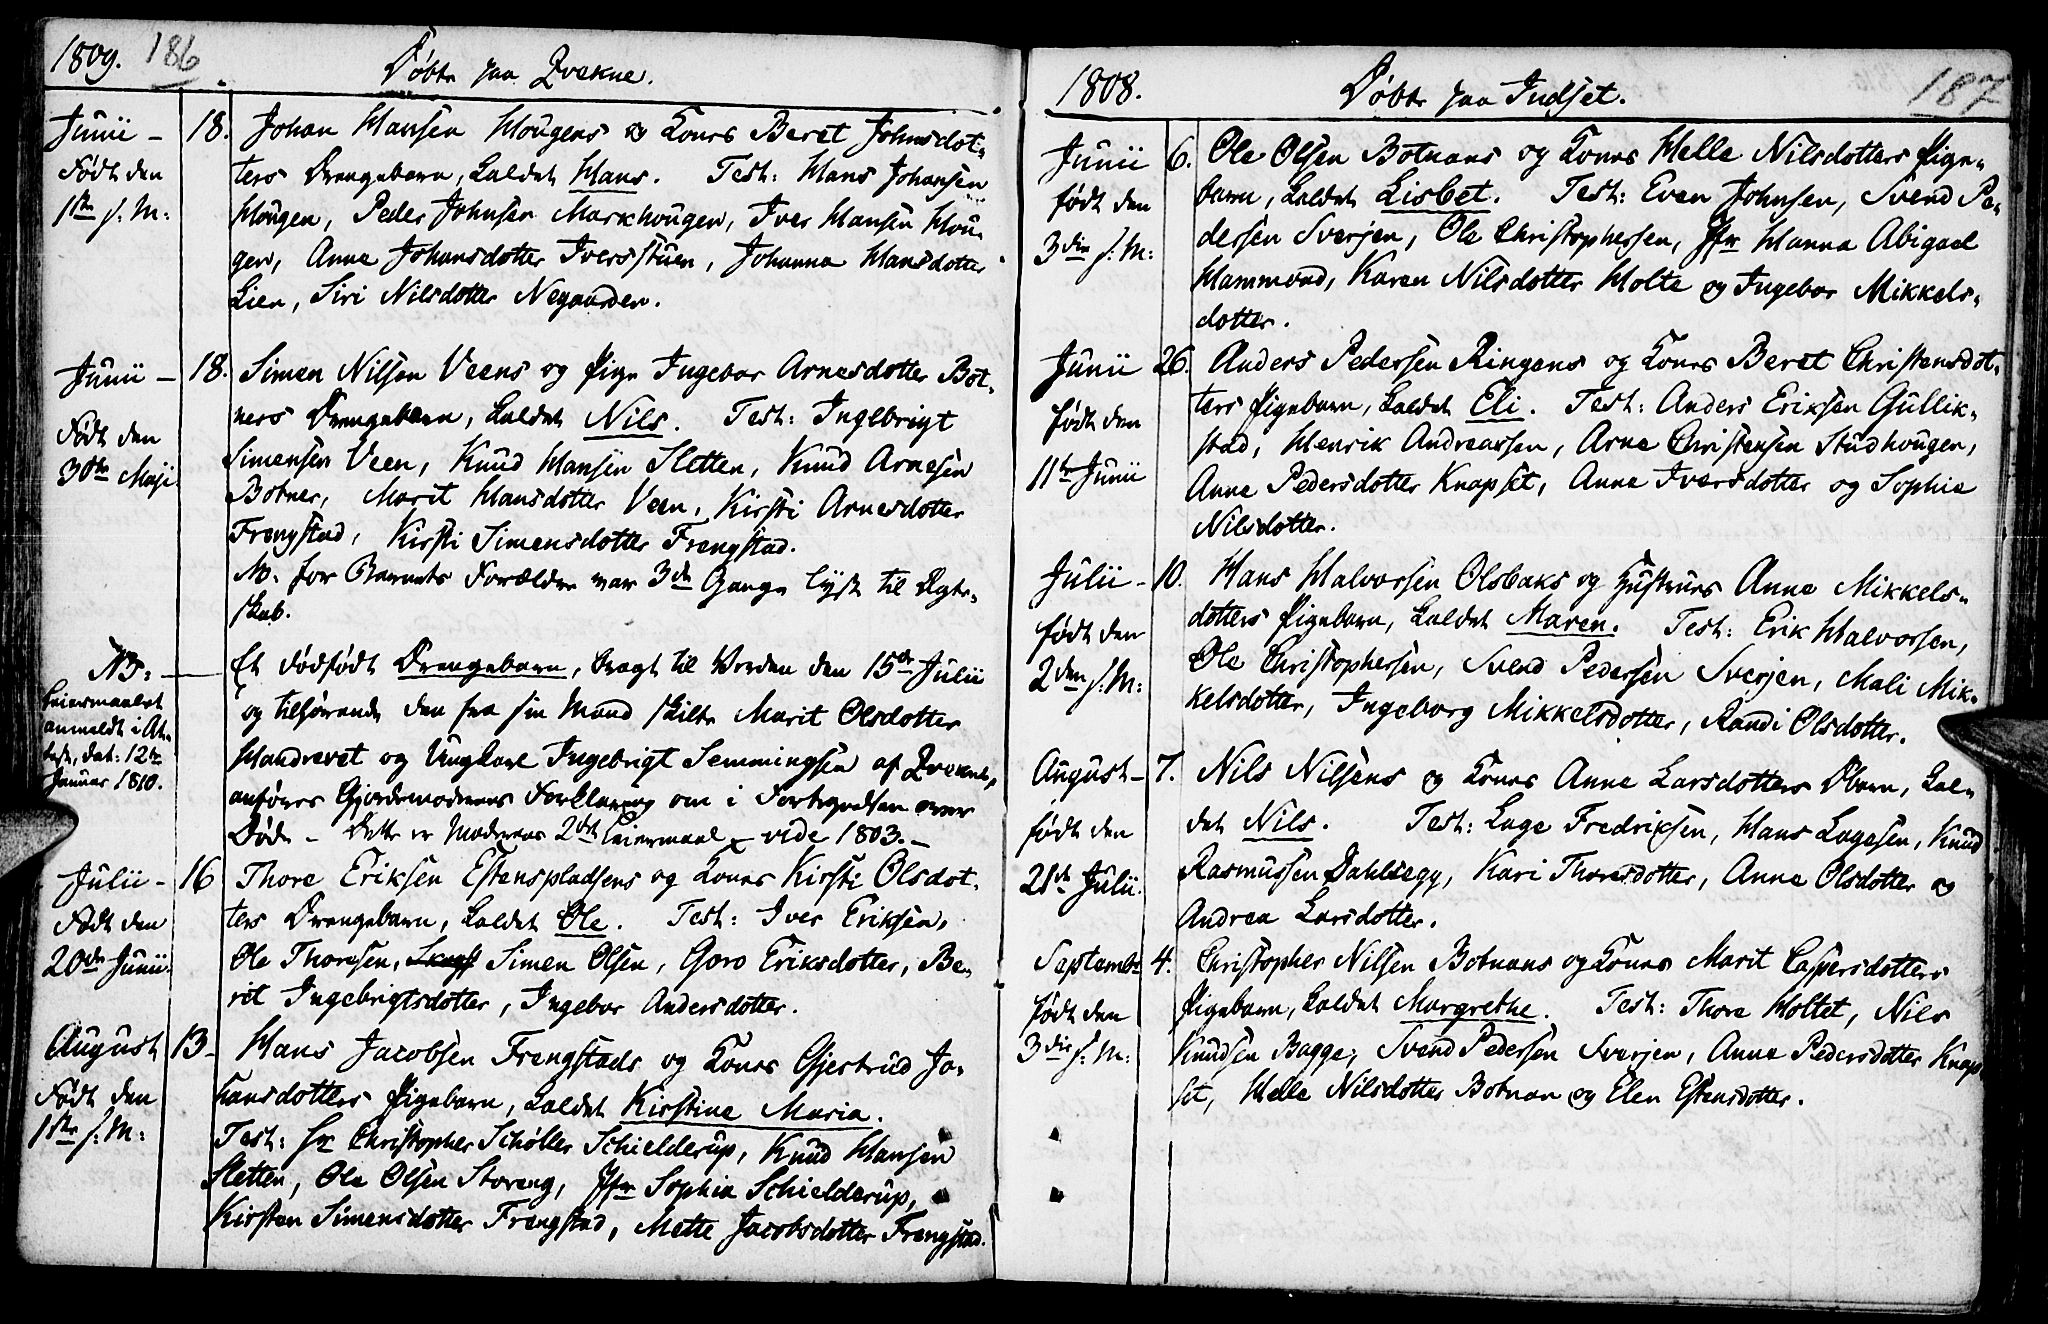 1809. 186
Døbte paa Qvekne.
Junii - 18. Johan Hansen Hougens og Kones Beret Johnsdot-
Født den ters Drengebarn, kaldet Hans. Test: Hans Johansen
1ste s: M: Hougen, Peder Johnsen Markhougen, Iver Hansen Hou-
gen, Anne Johansdotter Iversstuen, Johanna Hansdotter
Lien, Siri Nilsdotter Negaarden.
Junii - 18. Simen Nilsen Veens og Pige Ingebor Arnesdotter Bot-
ners Drengebarn, kaldet Nils. Test: Ingebrigt
Født den Simensen Veen, Knud Hansen Sletten, Knud Arnesen
30te Maji Botner, Marit Hansdotter Veen, Kirsti Arnesdotter
Frengstad, Kirsti Simensdotter Frengstad.
NB. for Barnets Forældre var 3de Gange lyst til Ægte-
skab.
NB: Et dødfødt Drengebarn, bragt til Jorden den 15de Julii
Leiermaalet og tilhørende den fra sin Mand skilte Marit Olsdotter
anmeldt i At-
test, dat: 12te Handrevet og Ungkarl Ingebrigt Semmingsen af Qvekne,
Januar 1810. anføres Gjordemodrens Forklaring om i Fortegnelsen over
Døde - Dette er Moderens 2det Leiermaal - vide 1803. -
Julii - 16 Thore Eriksen Estenspladsens og Kones Kirsti Olsdot-
Født den ters Drengebarn, kaldet Ole. Test: Iver Eriksen,
20de Junii. Ole Thoresen, Simen Olsen, Goro Eriksdotter, Be-
rit Ingebrigtsdotter, Ingebor Andersdotter.
August 13 - Hans Jacobsen Frengstads og Kones Gjertrud Jo-
Født den hansdotters Pigebarn, kaldet Kirstine Maria.
1ste s: M: Test: Hr Christopher Schøller Schielderup, Knud Hansen
Sletten, Ole Olsen Storeng, Jfr Sophia Schielderup,
Kirsten Simensdotter Frengstad, Mette Jacobsdotter Frengstad.
1808. Døbte paa Indset. 187
Junii 6. Ole Olsen Botnans og Kones Helle Nilsdotters Pige-
født den barn, kaldet Lisbet. Test: Even Johnsen, Svend Pe-
3die s: M: dersen Sverjen, Ole Christophersen, Jfr Hanna Abigael
Hammond, Karen Nilsdotter Holte og Ingebor Mikkels-
dotter.
Junii 26. Anders Pedersen Ringens og Kones Beret Christensdot-
født den ters Pigebarn, kaldet Eli. Test: Anders Eriksen Gullik-
stad, Henrik Andreassen, Arne Christensen Studhougen,
11te Junii Anne Pedersdotter Knapset, Anne Iversdotter og Sophie
Nilsdotter.
Julii - 10. Hans Halvorsen Olsbaks og Hustrues Anne Mikkels-
født den dotters Pigebarn, kaldet Maren. Test: Erik Halvorsen,
2den s: M: Ole Christophersen, Svend Pedersen Sverjen, Mali Mik-
kelsdotter, Ingeborg Mikkelsdotter, Randi Olsdotter.
August - 7. Nils Nilsens og Kones Anne Larsdotters Dbarn, kal-
født den det Nils. Test: Lage Fredriksen, Hans Lagesen, Knud
21de Julii. Rasmussen Dahlsegg, Kari Thoresdotter, Anne Olsdotter og
Andrea Larsdotter.
Septembr 4. Christopher Nilsen Botnans og Kones Marit Caspersdotters
født den Pigebarn, kaldet Margrethe. Test: Thore Holtet, Nils
3die s: M: Knudsen Bagge, Svend Pedersen Sverjen, Anne Pedersdotter Knap-
set, Helle Nilsdotter Botnan og Elen Estensdotter.